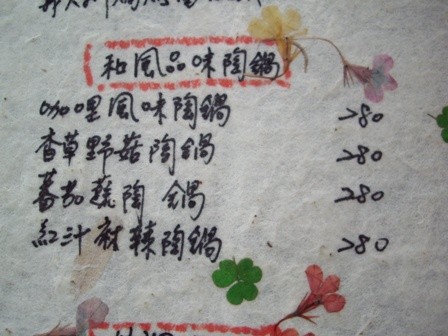 和風品味陶鍋
咖哩風味陶鍋 280
香草野菇陶鍋 280
蕃茄蔬陶鍋 280
紅汁麻辣陶鍋 280